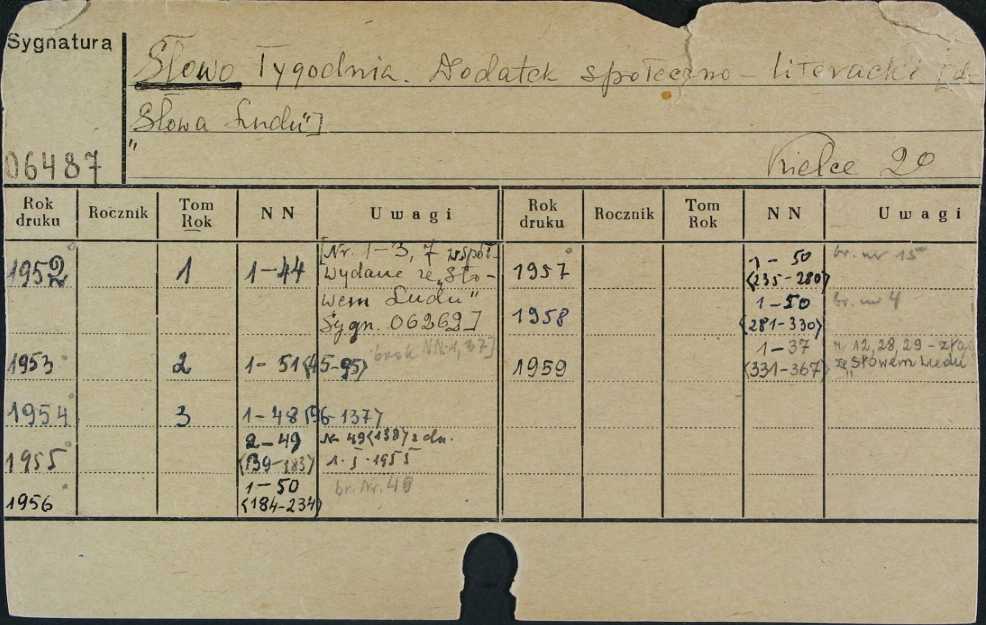 Sygnatura
Słowo Tygodnia. Dodatek społeczno-literacki [d.
"Słowa Ludu"]
06487
Kielce 20
Rok druku Rocznik Tom Rok NN Uwagi Rok druku Rocznik Tom Rok NN Uwagi
1952 1 1-44 [Nr. 1-3, 7 współ-
wydane ze „Sło-
wem Ludu"
Sygn. 06262]
1953 2 1-51 (45-95) brak NN 1, 37]
1954 3 1-48 (96-137)
1955 2-49 (139-183) Nr 49 (138) z dn.
1.I.1955
1956 1-50 (184-234) br. Nr. 49
1957 1-50 (235-280) br. nr 15
1958 1-50 (281-330) br. nr 4
1959 1-37 (331-367) 12, 28, 29
ze „Słowem Ludu"